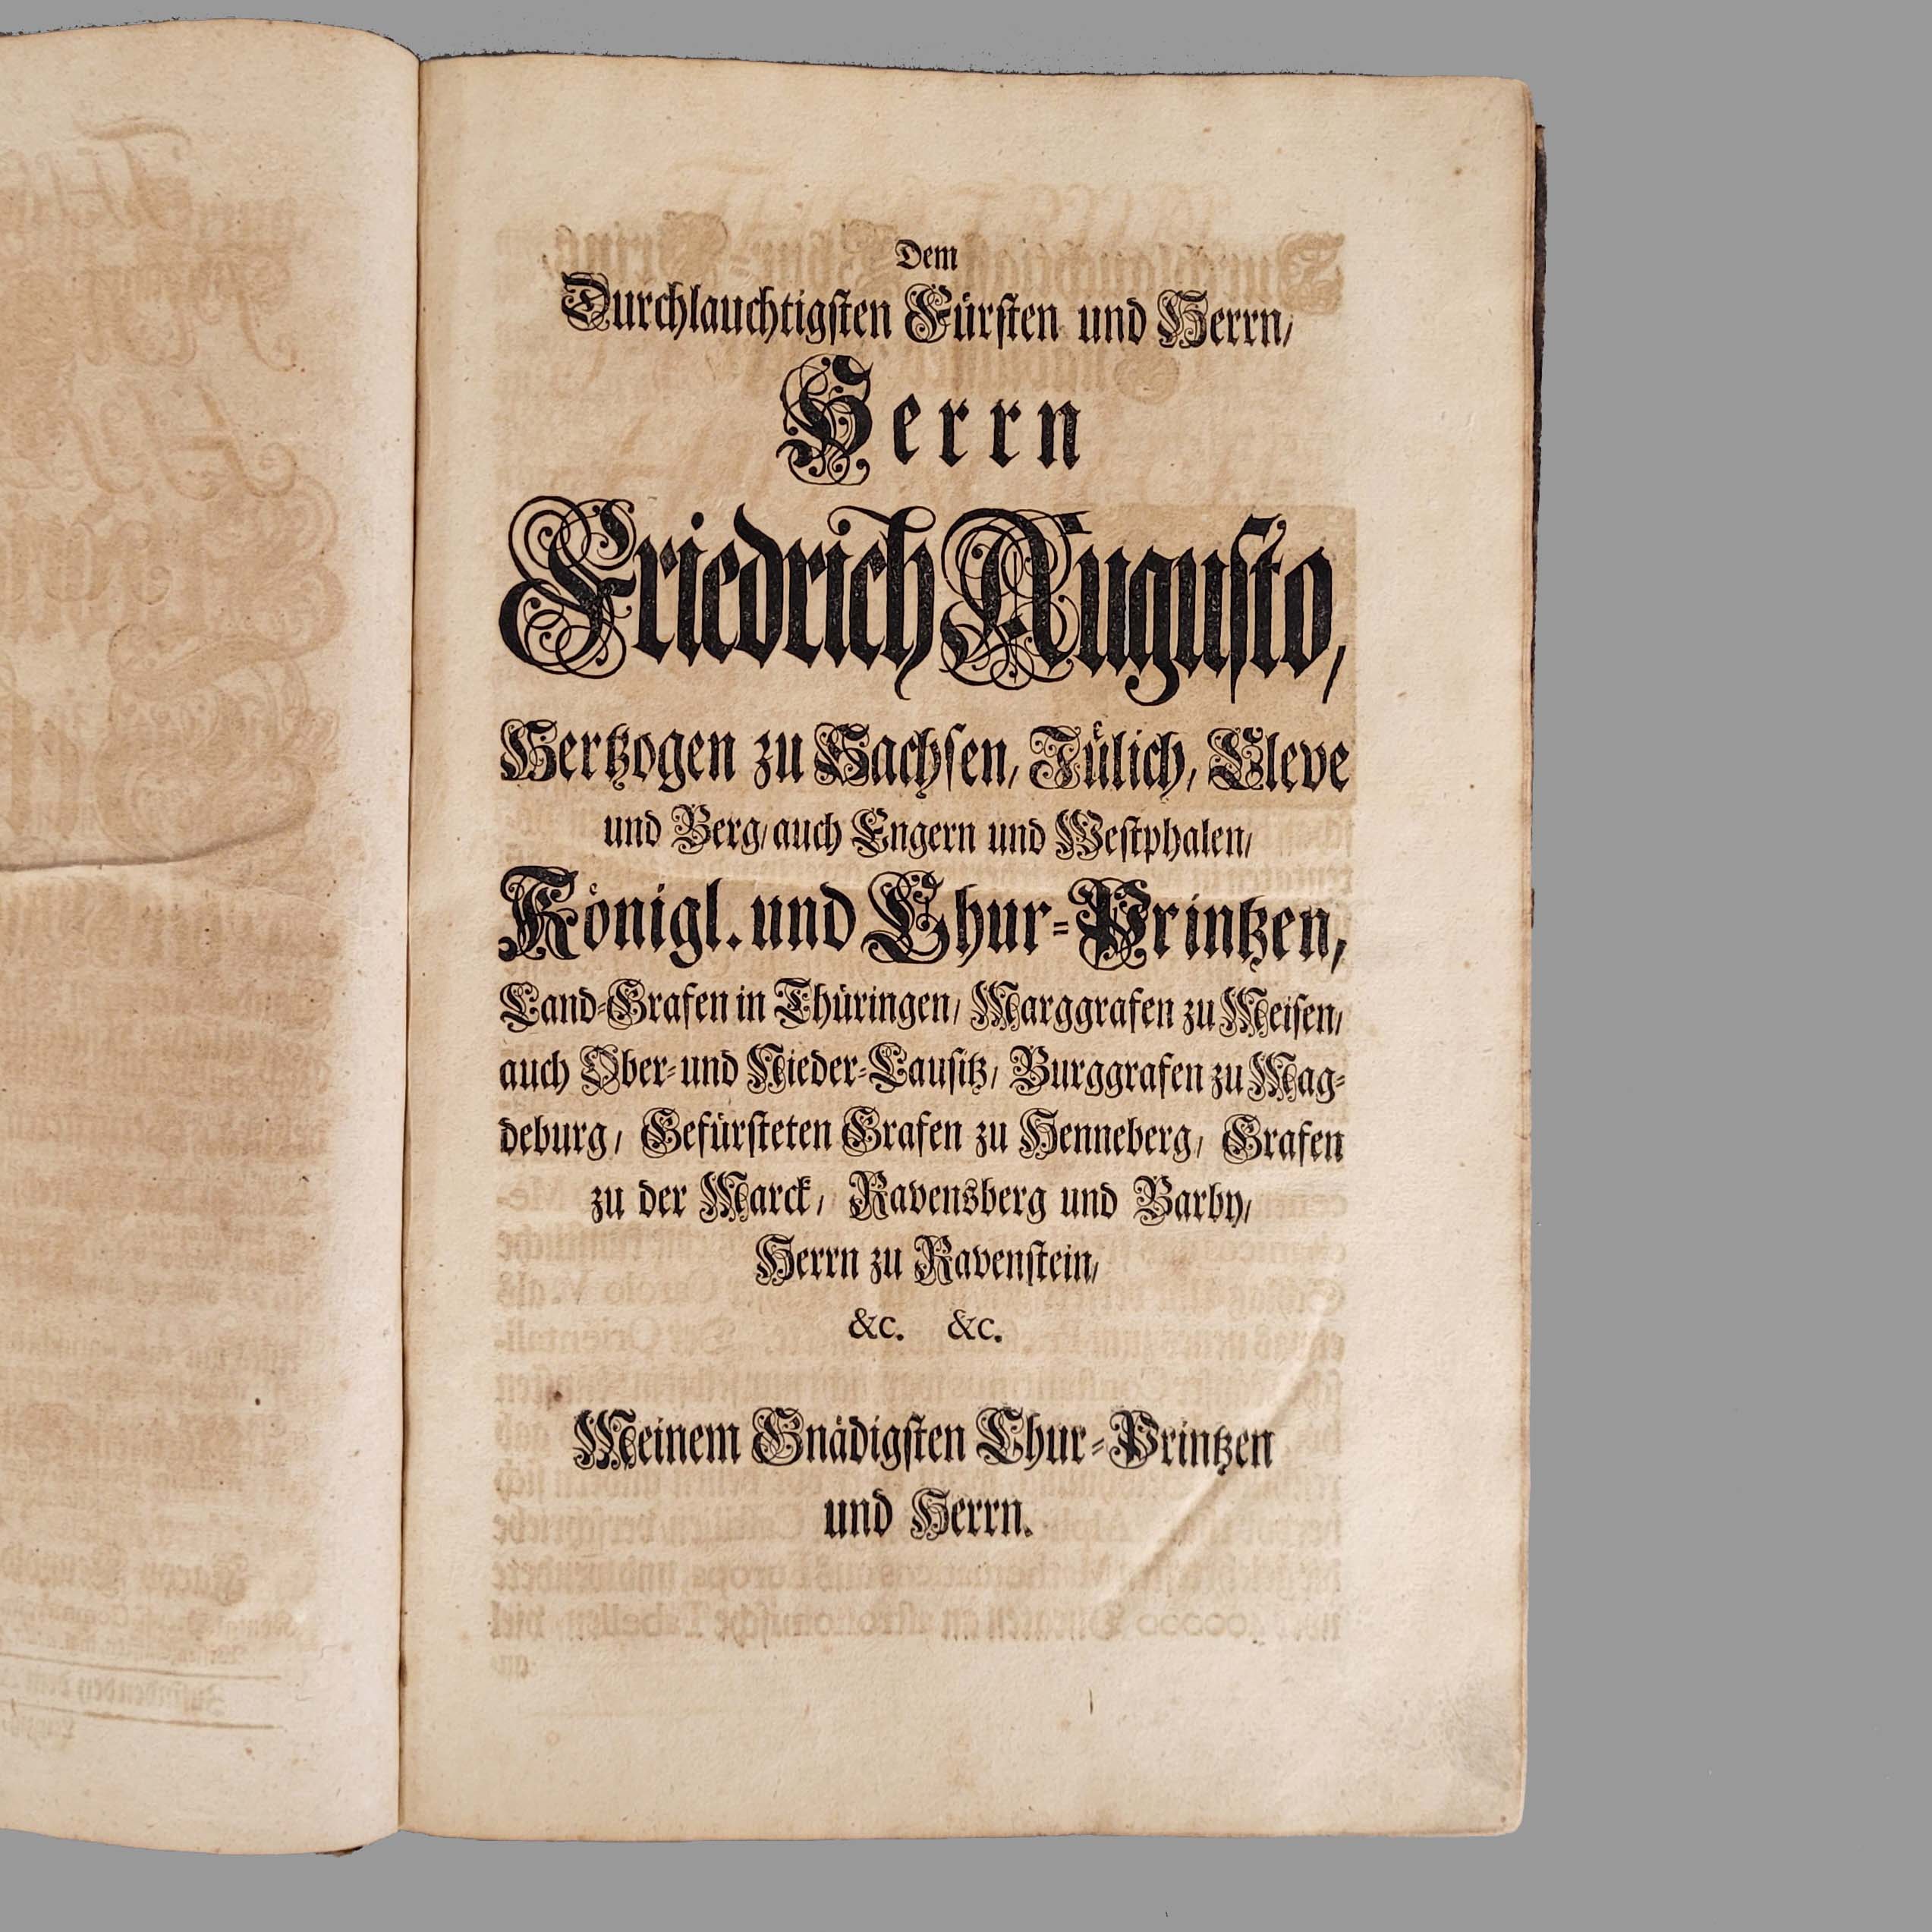 Dem
Durchlauchtigsten Fürsten und Herrn/
Herrn
Friedrich Augusto,
Hertzogen zu Sachsen, Jülich, Cleve
und Berg/ auch Engern und Westphalen/
Königl. und Chur-Printzen,
Land-Grafen in Thüringen/ Marggrafen zu Meisen/
auch Ober- und Nieder-Lausitz/ Burggrafen zu Mag-
deburg/ Gefürsteten Grafen zu Henneberg/ Grafen
zu der Marck/ Ravensberg und Barby/
Herrn zu Ravenstein/
&c. &c.
Meinem Gnädigsten Chur-Printzen
und Herrn.